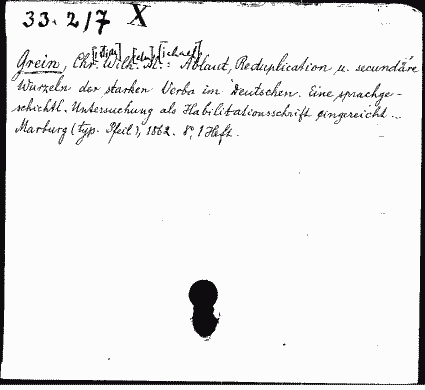 33. 217 X
[istian] [elm] [ichael]
Grein, Chr. Wilh. M.: Ablaut, Reduplication u. secundäre
Wurzeln der starken Verba im Deutschen. Eine sprachge-
schichtl. Untersuchung als Habilitationsschrift eingereicht...
Marburg (typ. Pfeil), 1862. 8°, 1 Heft.